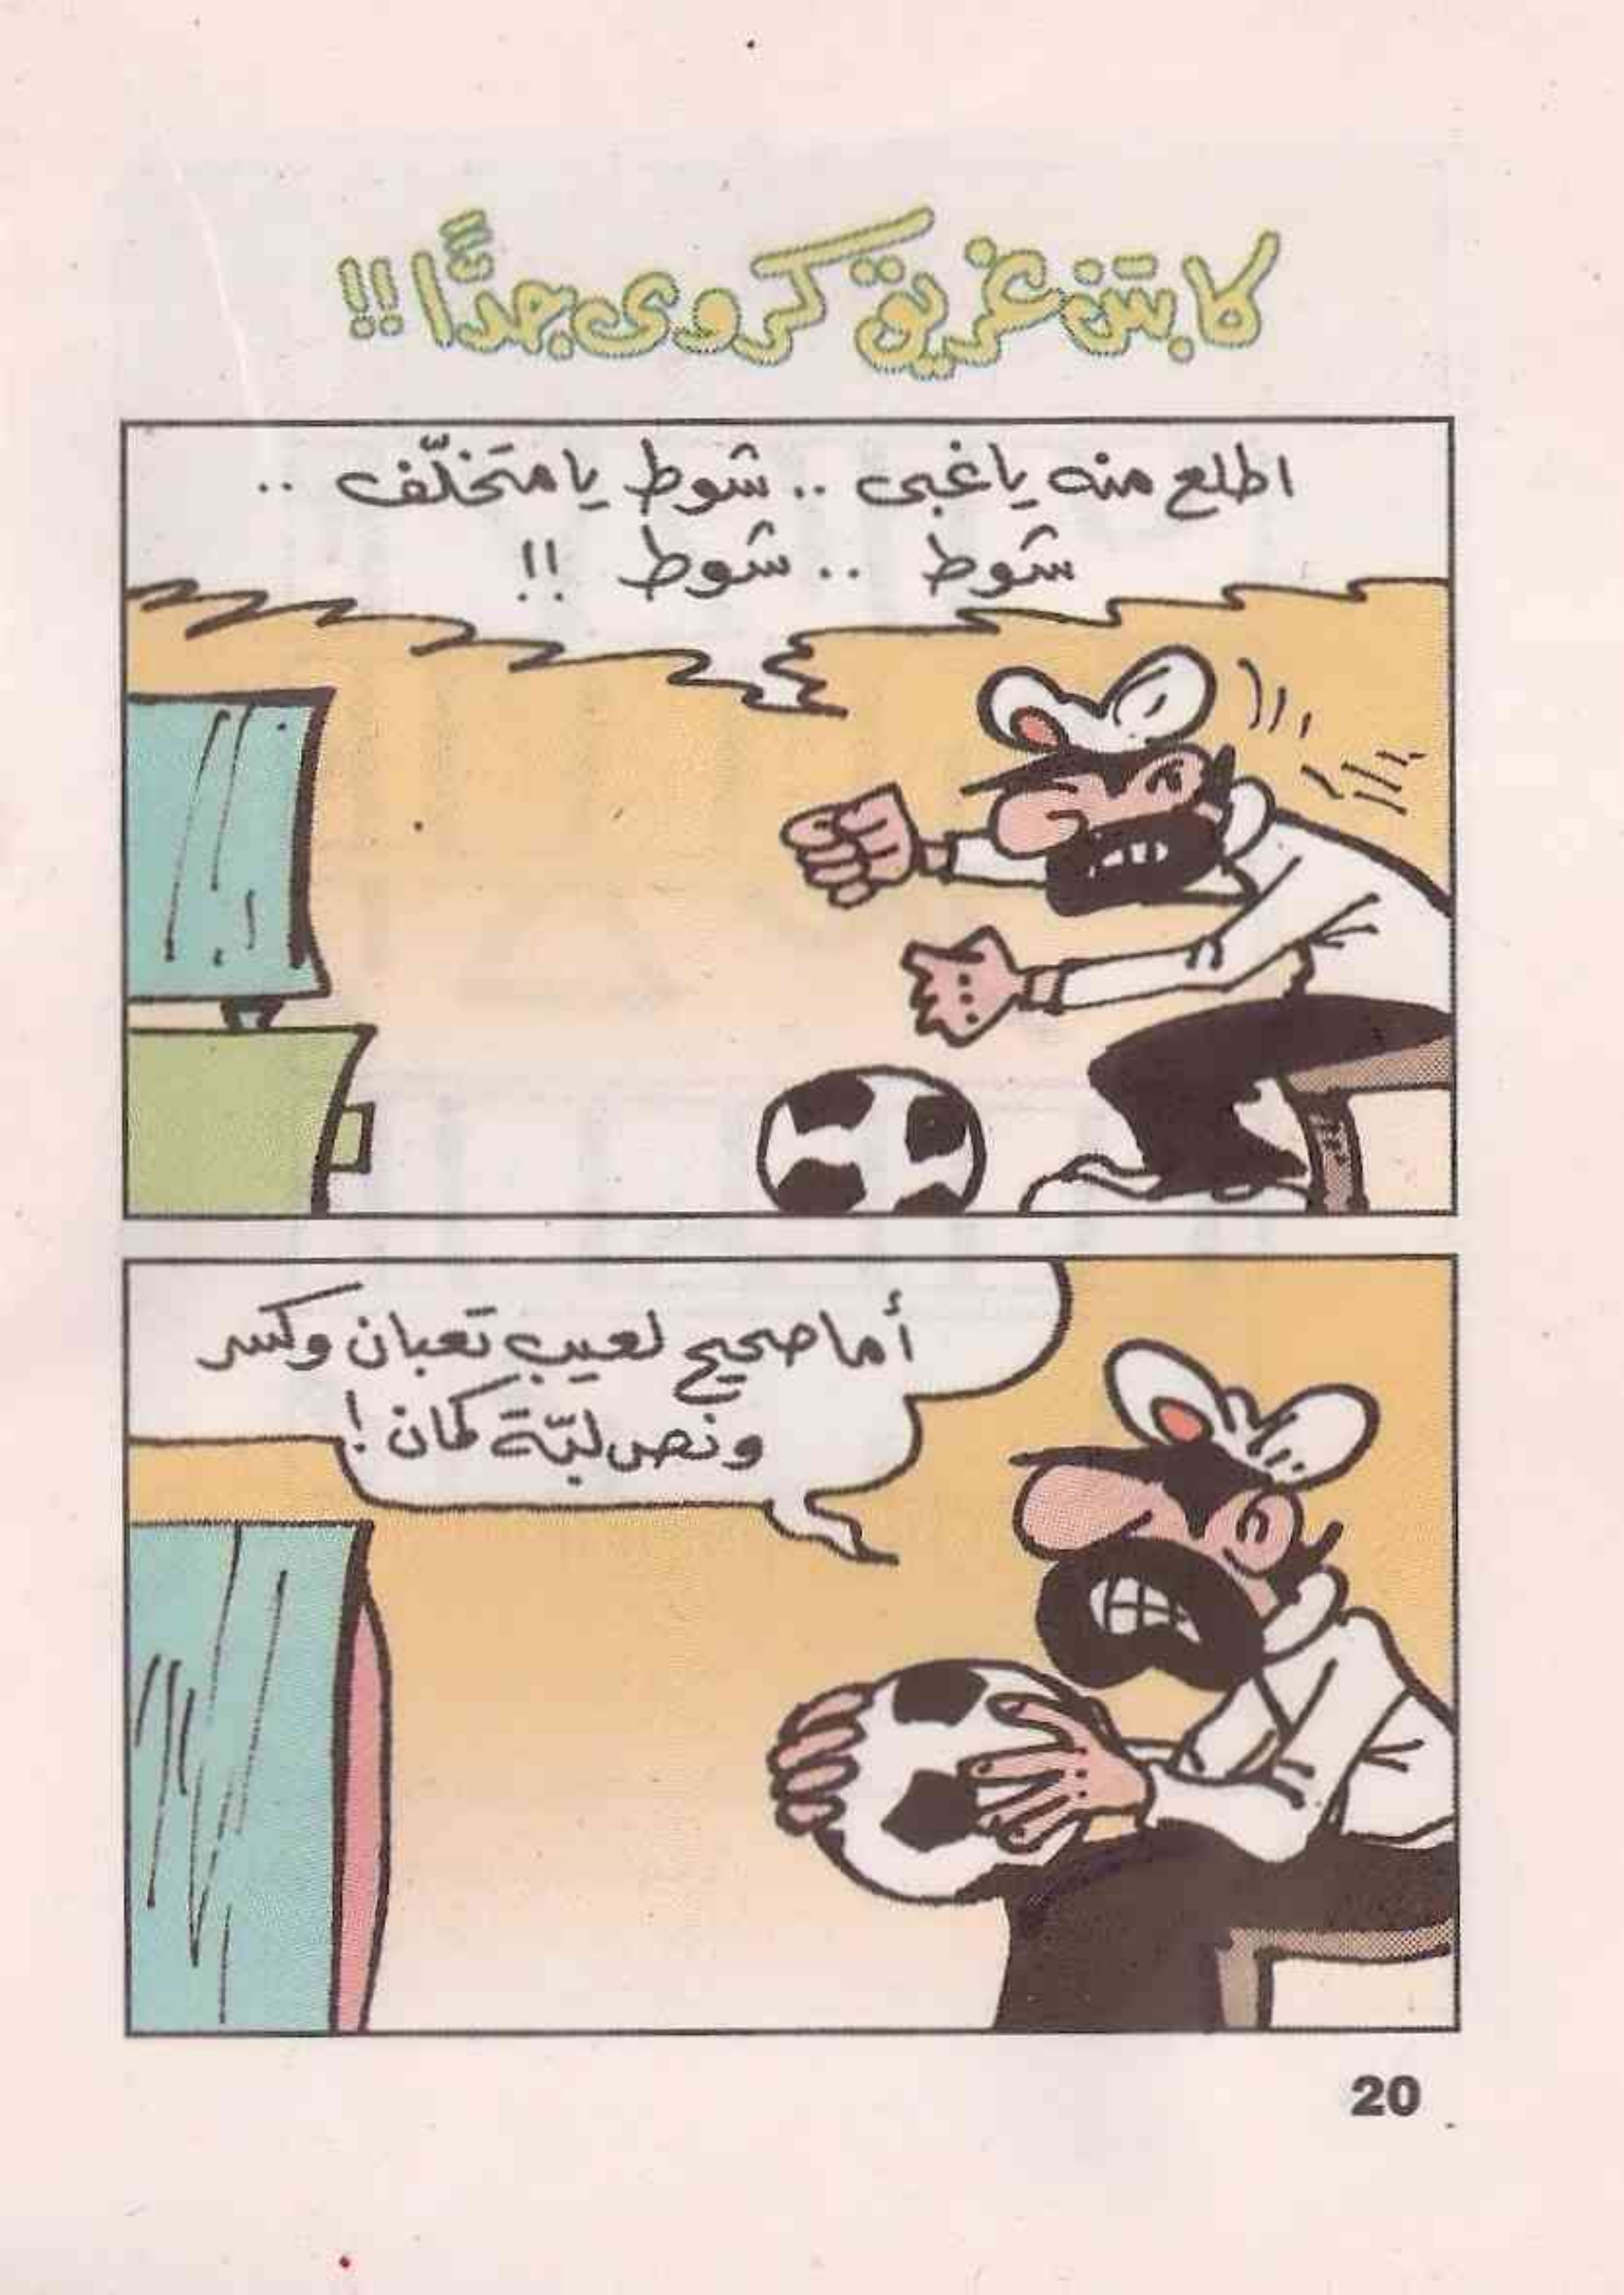 كابتن غريق كروى جدًّا !!
اطلع منه ياغبى .. شوط يامتخلّف ..
شوط .. شوط !!
أما صحيح لعيب تعبان وكسر
ونص لبّة كمان !
20